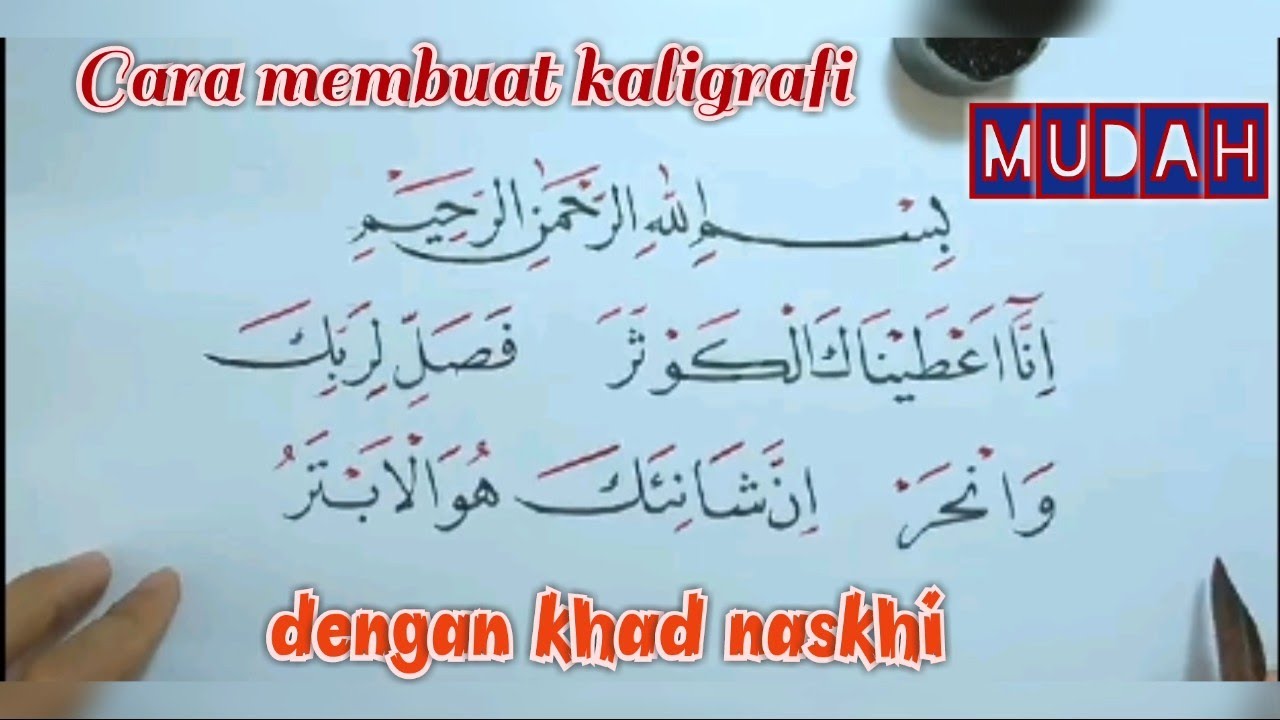 Cara membuat kaligrafi
MUDAH
بِسْمِ اللهِ الرَّحْمَنِ الرَّحِيْمِ
اِنَّا اَعْطَيْنَاكَ الْكَوْثَرَ فَصَلِّ لِرَبِّكَ
وَانْحَرْ اِنَّ شَانِئَكَ هُوَ الْاَبْتَرُ
dengan khad naskhi